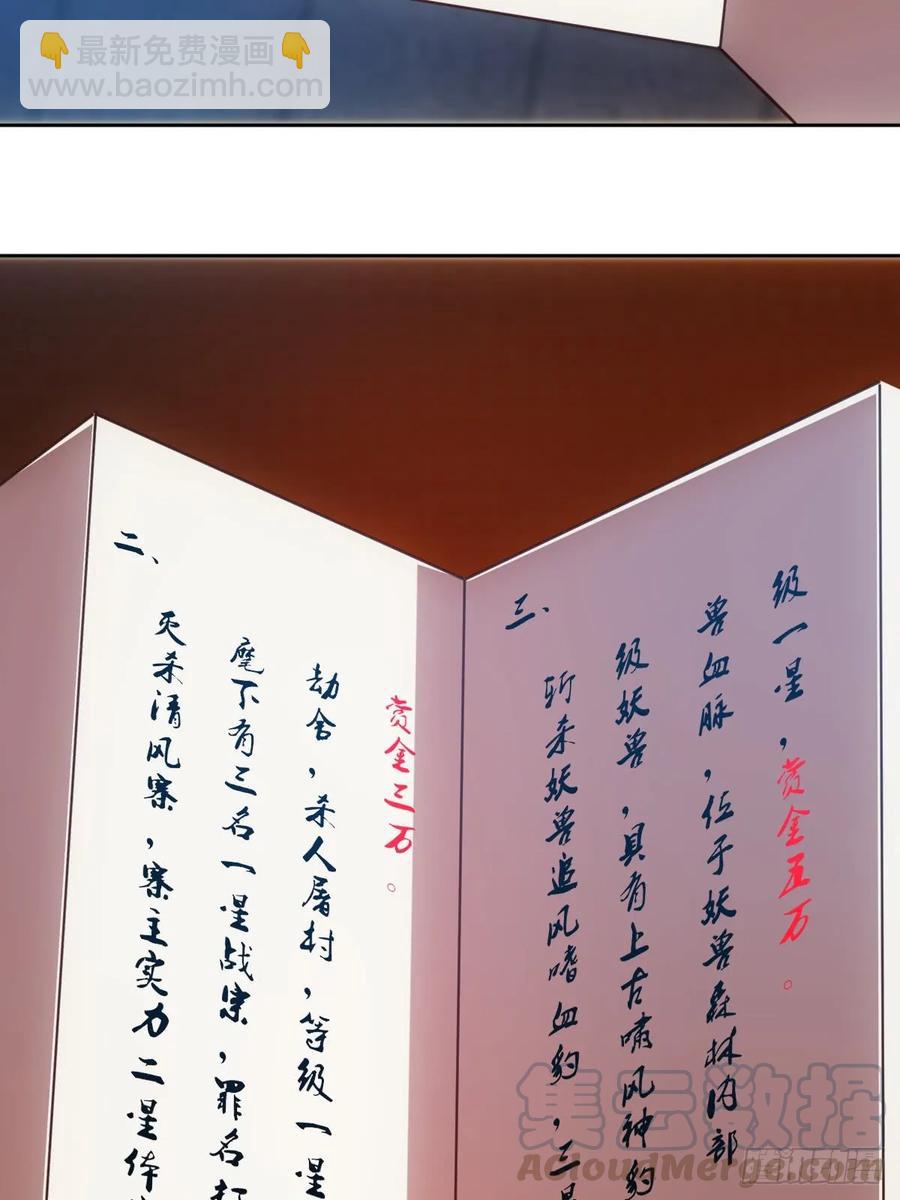 最新免费漫画
www.baozimh.com
二、
灭杀清风寨，寨主实力二星体
麾下有三名一星战宗，罪名打
劫舍，杀人屠村，等级一星
赏金三万。
三、
斩杀妖兽追风嗜血豹，三星
级妖兽，具有上古啸风神豹
兽血脉，位于妖兽森林内部
级一星，赏金五万。
集云数据
AcloudMerge.com